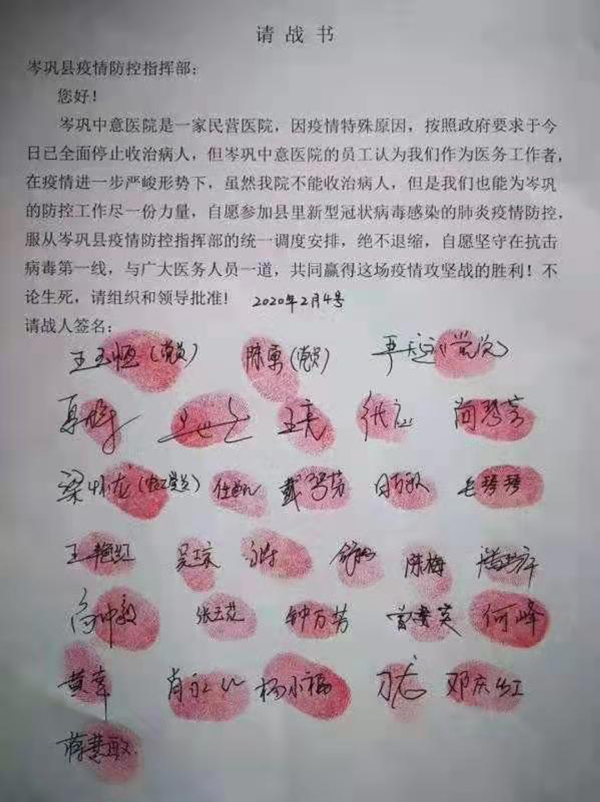 请战书
岑巩县疫情防控指挥部：
您好！
岑巩中意医院是一家民营医院，因疫情特殊原因，按照政府要求于今
日已全面停止收治病人，但岑巩中意医院的员工认为我们作为医务工作者，
在疫情进一步严峻形势下，虽然我院不能收治病人，但是我们也能为岑巩
的防控工作尽一份力量，自愿参加县里新型冠状病毒感染的肺炎疫情防控，
服从岑巩县疫情防控指挥部的统一调度安排，绝不退缩，自愿坚守在抗击
病毒第一线，与广大医务人员一道，共同赢得这场疫情攻坚战的胜利！不
论生死，请组织和领导批准！ 2020年2月4号
请战人签名：
王玉恒（党员） 陈勇（党员） （党员）
王亮 简琴芳
梁怀龙 戴弩芳 毛琴琴
王艳红 吴琼 陈梅
向中毅 张玉花 钟万芳 何峰
黄幸 肖 杨小福 邓庆红
蒋慧敏